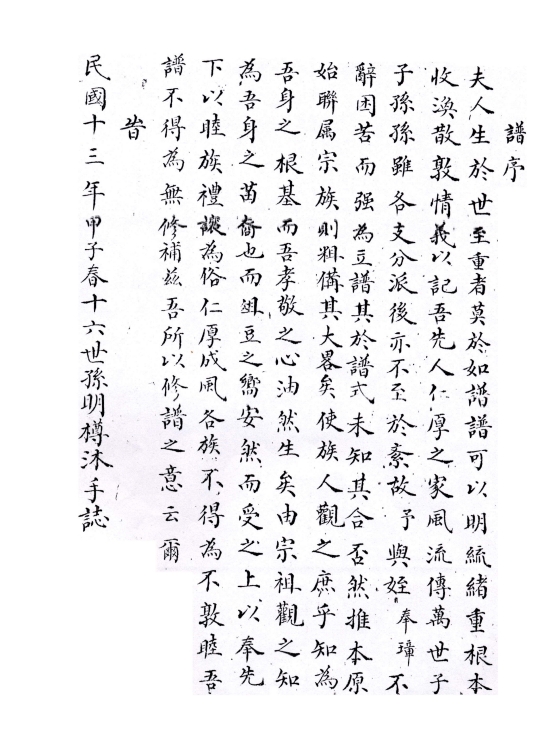 譜序
夫人生於世至重者莫於如譜譜可以明統緒重根本
收渙散敦情義以記吾先人仁厚之家風流傳萬世子
子孫孫雖各支分派後亦不至於紊故予與姪奉璋不
辭困苦而强為豆譜其於譜式未知其合否然推本原
始聯属宗族則粗備其大畧矣使族人觀之庶乎知為
吾身之根基而吾孝敬之心油然生矣由宗祖觀之知
為吾身之苗裔也而俎豆之嚮安然而受之上以奉先
下以睦族禮讓為俗仁厚成風各族不得為不敦睦吾
譜不得為無修補玆吾所以修譜之意云爾
旹
民國十三年甲子春十六世孫明樽沐手誌